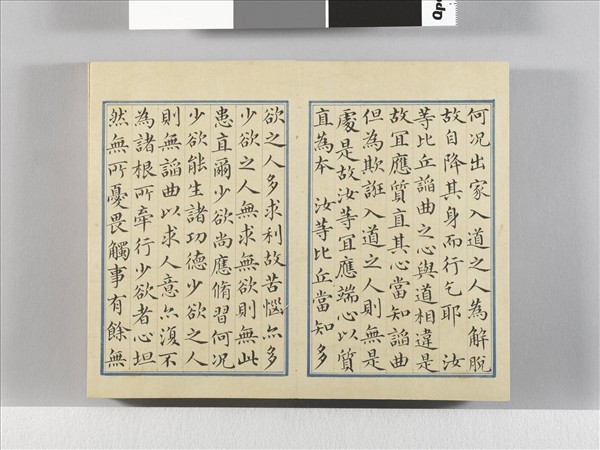 何况出家入道之人為解脫
故自降其身而行乞耶　汝
等比丘謟曲之心與道相違是
故冝應質直其心當知謟曲
但為欺誑入道之人則無是
處是故汝等冝應端心以質
直為本　汝等比丘當知多
欲之人多求利故苦惱亦多
少欲之人無求無欲則無此
患直爾少欲尚應脩習何况
少欲能生諸功德少欲之人
則無謟曲以求人意亦復不
為諸根所牽行少欲者心坦
然無所憂畏觸事有餘無